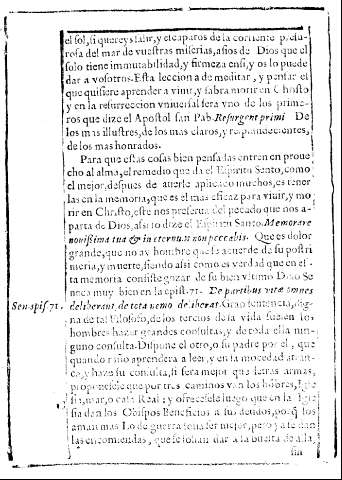 el sol, si quereys salir, y escaparos de la corriente presu-
rosa del mar de vuestras miserias, asios de Dios que el
solo tiene immutabilidad, y firmeza en si, y os lo puede
dar a vosotros. Esta leccion a de meditar, y pensar el
que quisiere aprender a viuir, y sabra morir en Christo
y en la resurreccion vniuersal sera vno de los prime-
ros que dize el Apostol san Pab. Resurgent primi De
los mas illustres, de los mas claros, y resplandecientes,
de los mas honrados.
Para que estas cosas bien pensadas entren en proue
cho al alma, el remedio que da el Espiritu Santo, como
el mejor, despues de auerle aplicado muchos, es tener
las en la memoria, que es el mas eficaz para viuir, y mo
rir en Christo, este nos preserua del pecado que nos a-
parta de Dios, assi lo dize el Espiritu Santo. Memorare
nouissima tua & in eternum non peccabis. Que es dolor
grande, que no ay hombre que se acuerde de su postri
meria, y muerte, siendo assi como es verdad que en esta
memoria consiste gozar de su bien vltimo Dixo Se
neca muy bien en la epist. 71. De partibus vitæ omnes
Sen. epis. 71. deliberant, de tota nemo deliberat. Gran sentencia, dig-
na de tal Filosofo, de los tercios de la vida hazen los
hombres hazer grandes consultas, y de toda ella nin-
guno consulta. Dispone el otro, o su padre por el, que
quando niño aprendera a leer, y en la mocedad
y haze su consulta, si sera mejor que letras armas,
proponesele que por tres caminos van los hõbres, Igle
sia, mar, o casa Real: y ofrecesele luego que en la Igle
sia dan los Obispos Beneficios a sus deudos, porq̃ los
aman mas Lo de guerra mejor, pero
las encomiendas, que se solian dar a la buelta de a la
sin